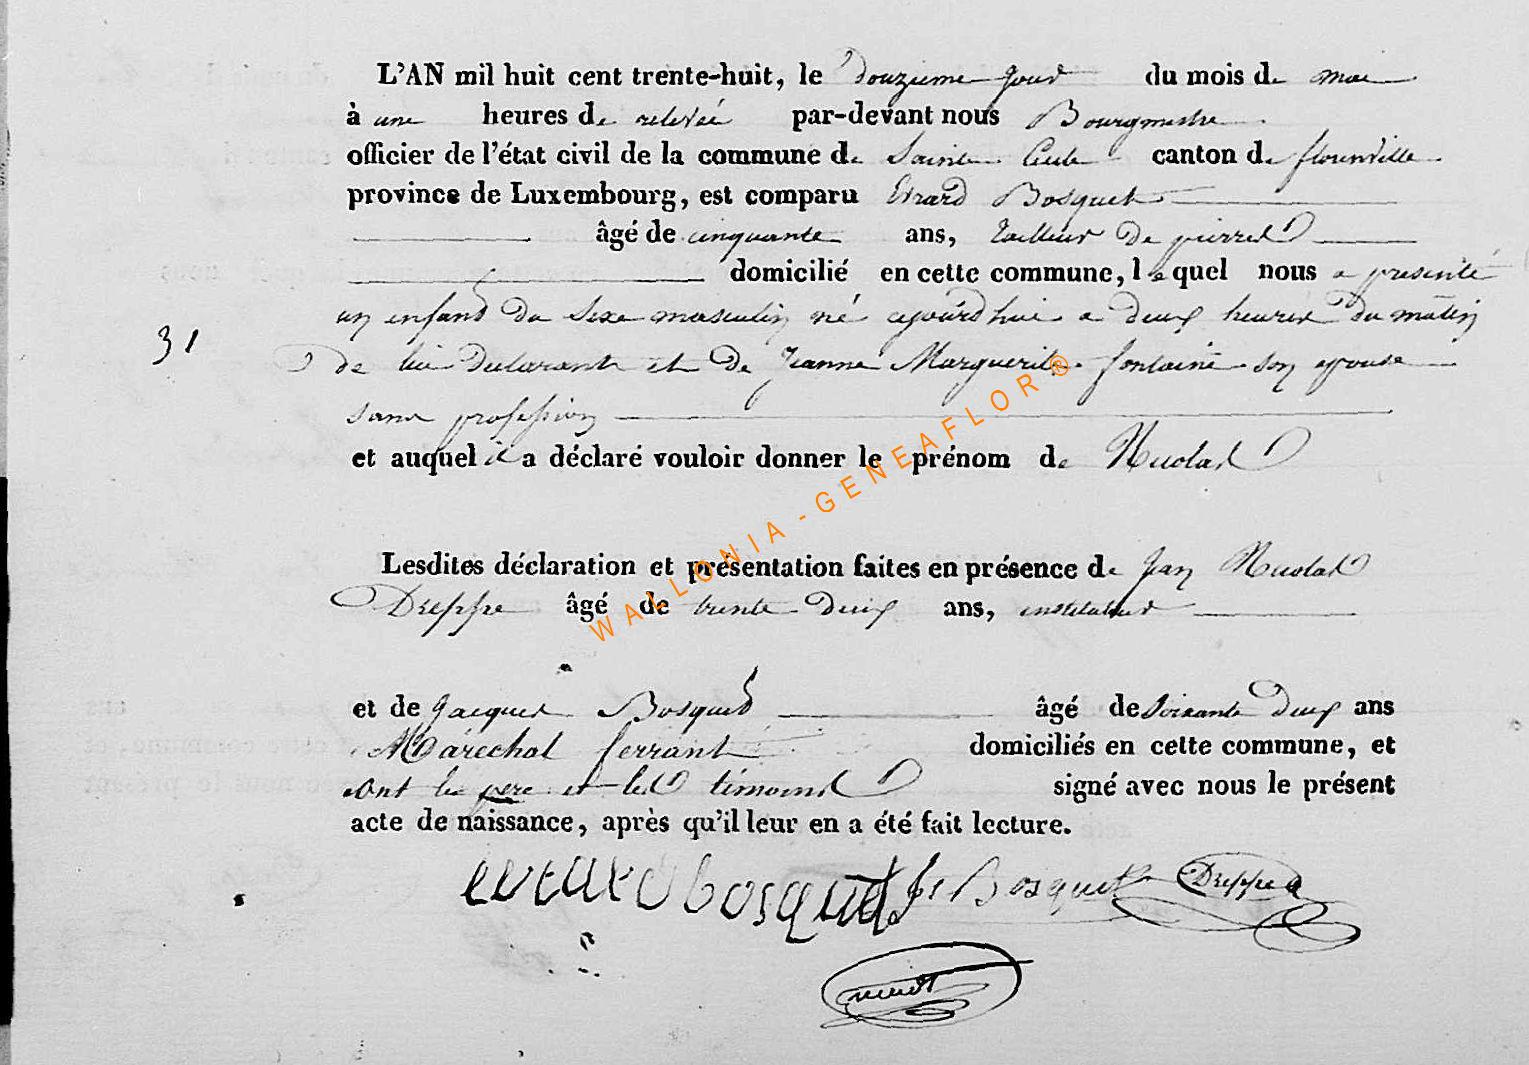 L'AN mil huit cent trente-huit, le Douzieme jour du mois de mai
à une heures de relevée par-devant nous Bourgmestre
officier de l'état civil de la commune de Sainte Cecile canton de florenville
province de Luxembourg, est comparu Evrard Bosquet
âgé de cinquante ans, tailleur de pierres
domicilié en cette commune, lequel nous a presenté
un enfant du sexe masculin né ajourdhui a deux heures du matin
31
de lui declarant et de Jeanne Marguerite fontaine son epouse
sans profession
et auquel il a déclaré vouloir donner le prénom de Nicolas
Lesdites déclaration et présentation faites en présence de Jean Nicolas
Dreppe âgé de trente deux ans, instituteur
et de Jacques Bosquet âgé de soixante deux ans
Maréchal ferrant domiciliés en cette commune, et
ont le pere et les témoins signé avec nous le présent
acte de naissance, après qu'il leur en a été fait lecture.
evrard bosquet Je Bosquet Dreppe
WALLONIA - GENEAFLOR ®